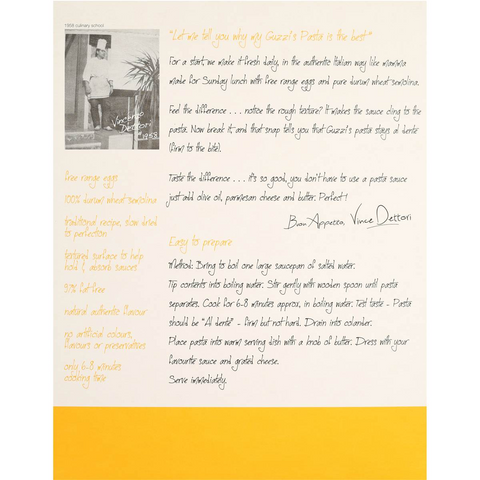 1958 culinary school
Vincenzo
Dettori
1958
"Let me tell you why my Guzzi's Pasta is the best"
For a start we make it fresh daily, in the authentic Italian way like mamma
made for Sunday lunch with free range eggs and pure durum wheat semolina.
Feel the difference . . . notice the rough texture? It makes the sauce cling to the
pasta. Now break it, and that snap tells you that Guzzi's pasta stays al dente
(firm to the bite).
Taste the difference . . . it's so good, you don't have to use a pasta sauce
just add olive oil, parmesan cheese and butter. Perfect!
Buon Appetito, Vince Dettori
free range eggs
100% durum wheat semolina
traditional recipe, slow dried
to perfection
textured surface to help
hold & absorb sauces
97% fat free
natural authentic flavour
no artificial colours,
flavours or preservatives
only 6-8 minutes
cooking time
Easy to prepare
Method: Bring to boil one large saucepan of salted water.
Tip contents into boiling water. Stir gently with wooden spoon until pasta
separates. Cook for 6-8 minutes approx, in boiling water. Test taste - Pasta
should be "Al dente" - firm, but not hard. Drain into colander.
Place pasta into warm serving dish with a knob of butter. Dress with your
favourite sauce and grated cheese.
Serve immediately.